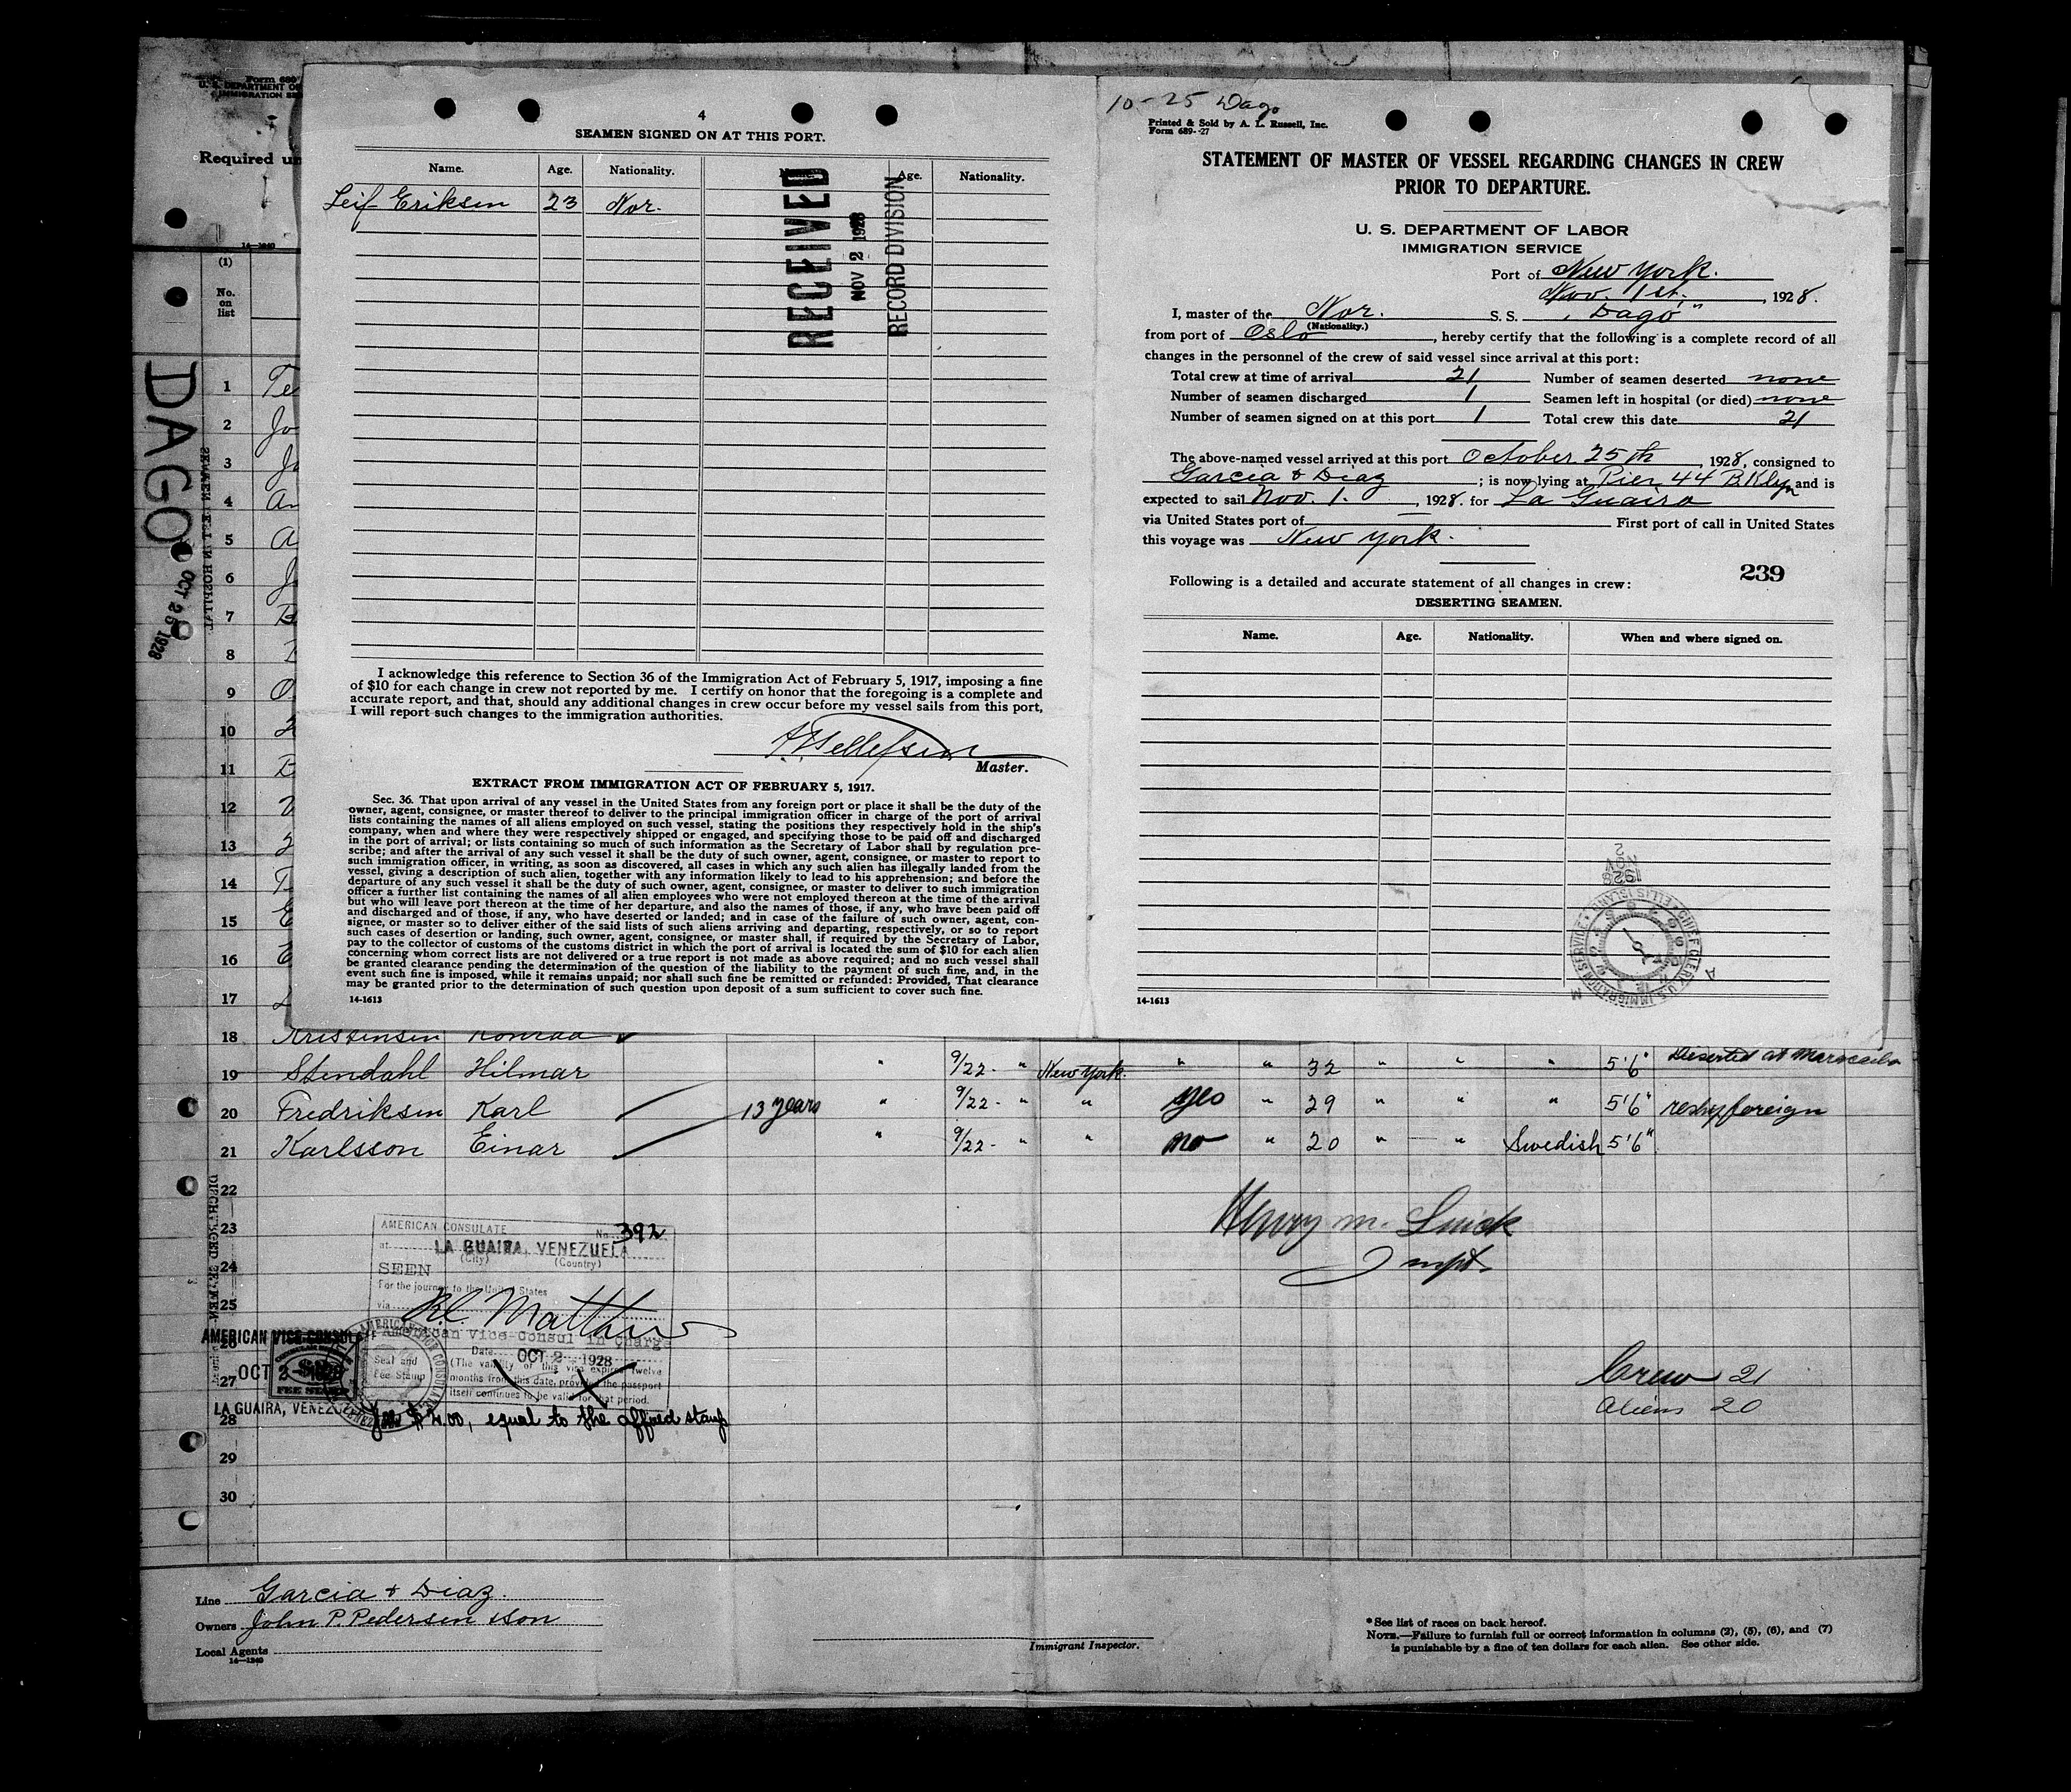 Form 689
U. S. DEPARTMENT OF
IMMIGRATION SE
Required un
14—1240
(1)
No.
on
list
DAGO
OCT 25 1928
SEAMEN LEFT IN HOSPITAL
DISCHARGED SEAMEN
4
SEAMEN SIGNED ON AT THIS PORT.
Name. Age. Nationality. Age. Nationality.
Leif Eriksen 23 Nor.
RECEIVED
NOV 2 1928
RECORD DIVISION
I acknowledge this reference to Section 36 of the Immigration Act of February 5, 1917, imposing a fine
of $10 for each change in crew not reported by me. I certify on honor that the foregoing is a complete and
accurate report, and that, should any additional changes in crew occur before my vessel sails from this port,
I will report such changes to the immigration authorities.
Tellefsen
Master.
EXTRACT FROM IMMIGRATION ACT OF FEBRUARY 5, 1917.
Sec. 36. That upon arrival of any vessel in the United States from any foreign port or place it shall be the duty of the
owner, agent, consignee, or master thereof to deliver to the principal immigration officer in charge of the port of arrival
lists containing the names of all aliens employed on such vessel, stating the positions they respectively hold in the ship's
company, when and where they were respectively shipped or engaged, and specifying those to be paid off and discharged
in the port of arrival; or lists containing so much of such information as the Secretary of Labor shall by regulation pre-
scribe; and after the arrival of any such vessel it shall be the duty of such owner, agent, consignee, or master to report to
such immigration officer, in writing, as soon as discovered, all cases in which any such alien has illegally landed from the
vessel, giving a description of such alien, together with any information likely to lead to his apprehension; and before the
departure of any such vessel it shall be the duty of such owner, agent, consignee, or master to deliver to such immigration
officer a further list containing the names of all alien employees who were not employed thereon at the time of the arrival
but who will leave port thereon at the time of her departure, and also the names of those, if any, who have been paid off
and discharged and of those, if any, who have deserted or landed; and in case of the failure of such owner, agent, con-
signee, or master so to deliver either of the said lists of such aliens arriving and departing, respectively, or so to report
such cases of desertion or landing, such owner, agent, consignee, or master shall, if required by the Secretary of Labor,
pay to the collector of customs of the customs district in which the port of arrival is located the sum of $10 for each alien
concerning whom correct lists are not delivered or a true report is not made as above required; and no such vessel shall
be granted clearance pending the determination of the question of the liability to the payment of such fine, and, in the
event such fine is imposed, while it remains unpaid; nor shall such fine be remitted or refunded: Provided, That clearance
may be granted prior to the determination of such question upon deposit of a sum sufficient to cover such fine.
14-1613
10-25 Dago
Printed & Sold by A. L. Russell, Inc.
Form 689--27
STATEMENT OF MASTER OF VESSEL REGARDING CHANGES IN CREW
PRIOR TO DEPARTURE.
U. S. DEPARTMENT OF LABOR
IMMIGRATION SERVICE
Port of New York.
Nov. 1st, 1928.
I, master of the Nor. S. S. "Dago"
(Nationality.)
from port of Oslo, hereby certify that the following is a complete record of all
changes in the personnel of the crew of said vessel since arrival at this port:
Total crew at time of arrival 21 Number of seamen deserted none
Number of seamen discharged 1 Seamen left in hospital (or died) none
Number of seamen signed on at this port 1 Total crew this date 21
The above-named vessel arrived at this port October 25th, 1928, consigned to
Garcia & Diaz; is now lying at Pier 44 B.Klyn and is
expected to sail Nov. 1., 1928. for La Guaira
via United States port of — First port of call in United States
this voyage was New York.
239
Following is a detailed and accurate statement of all changes in crew:
DESERTING SEAMEN.
Name. Age. Nationality. When and where signed on.
1928
NOV
2
CHIEF CLERK U.S. IMMIGRATION SERVICE • ELLIS ISLAND •
14-1613
1 Te
2 Jo
3
4 An
5 A
6
7 B
8
9 O
10
11
12
13
14
15
16
17
18 Kristensen Konrad
19 Stendahl Hilmar " 9/22- " New York. " " 32 " " " 5'6" Deserted at Maracaibo
20 Fredriksen Karl 13 years " 9/22- " " yes " 29 " " " 5'6" reship foreign
21 Karlsson Einar " 9/22- " " no " 20 " " Swedish 5'6"
22
23
24
25
26
27
28
29
30
Henry M.
Inspt.
AMERICAN CONSULATE No. 392
at LA GUAIRA, VENEZUELA
(City) (Country)
SEEN
For the journey to the United States
via
R.C. Matthews
American Vice-Consul in Charge
Date OCT 2 - 1928
(The validity of this visa expires twelve
months from this date, provided the passport
itself continues to be valid for that period.
Seal and
Fee Stamp
AMERICAN VICE CONSULATE
OCT 2 - 1928
FEE STAMP
LA GUAIRA, VENEZUELA
Fee $2.00, equal to the affixed stamp
Crew 21
Aliens 20
Line Garcia & Diaz.
Owners John P. Pedersen & Son
Local Agents
14—1240
Immigrant Inspector.
*See list of races on back hereof.
NOTE.—Failure to furnish full or correct information in columns (2), (5), (6), and (7)
is punishable by a fine of ten dollars for each alien. See other side.